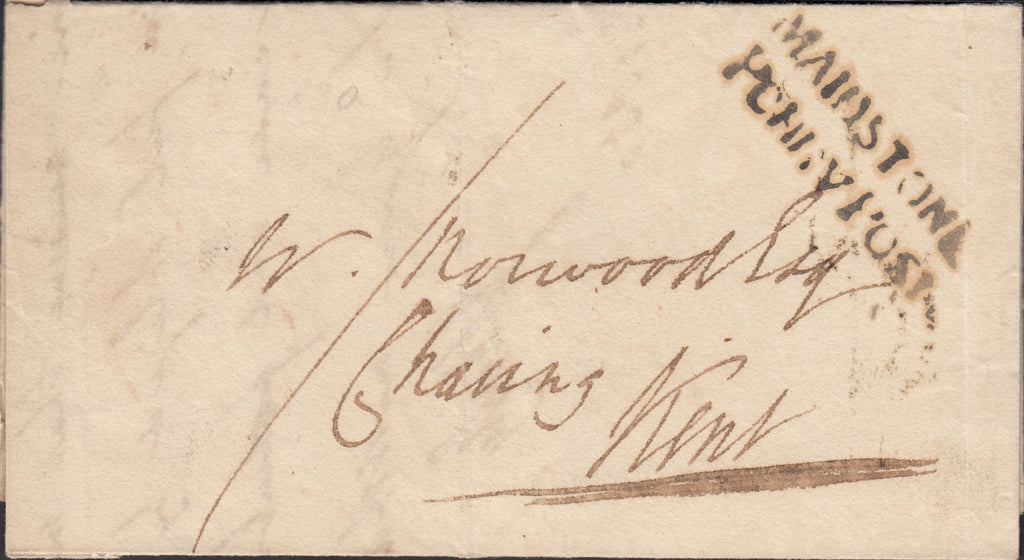 MAIDSTONE
PENNY POST
W. Norwood Esq
Charing
Kent